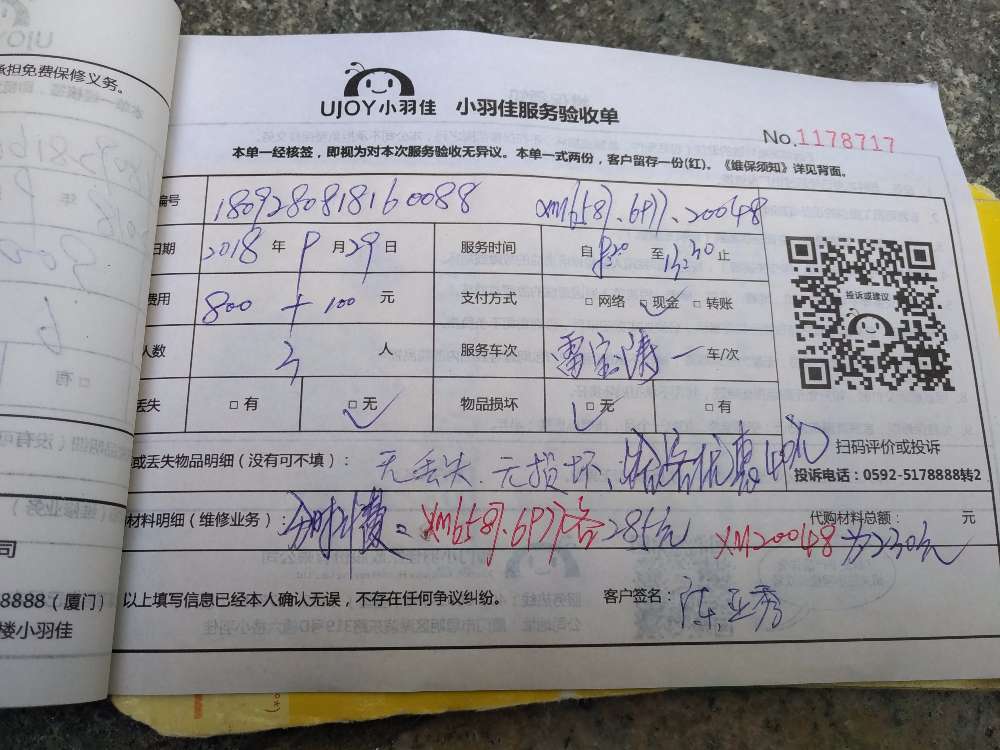 承担免费保修义务。
UJOY小羽佳 小羽佳服务验收单
No.1178717
本单一经核签，即视为对本次服务验收无异议。本单一式两份，客户留存一份(红)。《维保须知》详见背面。
编号 1809280818160088 xm6587.6977.20048
日期 2018 年 9 月 29 日 服务时间 自 820 至 1230 止
费用 800 + 100 元 支付方式 □ 网络 □ 现金 □ 转账
人数 3 人 服务车次 雷宝涛 一 车/次
丢失 □ 有 □ 无 物品损坏 □ 无 □ 有
投诉或建议
扫码评价或投诉
投诉电话：0592-5178888转2
或丢失物品明细（没有可不填）： 无丢失. 无损坏.
材料明细（维修业务）： 分时计费：xm6587.6977各285元 XM20048为230元
代购材料总额： 元
以上填写信息已经本人确认无误，不存在任何争议纠纷。 客户签名： 陈亚秀
司
8888（厦门）
楼小羽佳